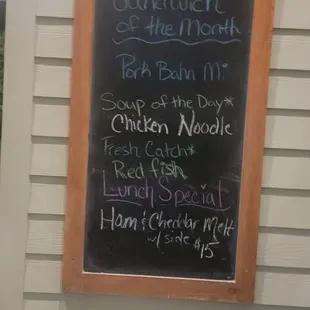 Sandwich
of the Month
Pork Bahn Mi
Soup of the Day*
Chicken Noodle
Fresh Catch*
Redfish
Lunch Special
Ham & Cheddar Melt
w/ side $15